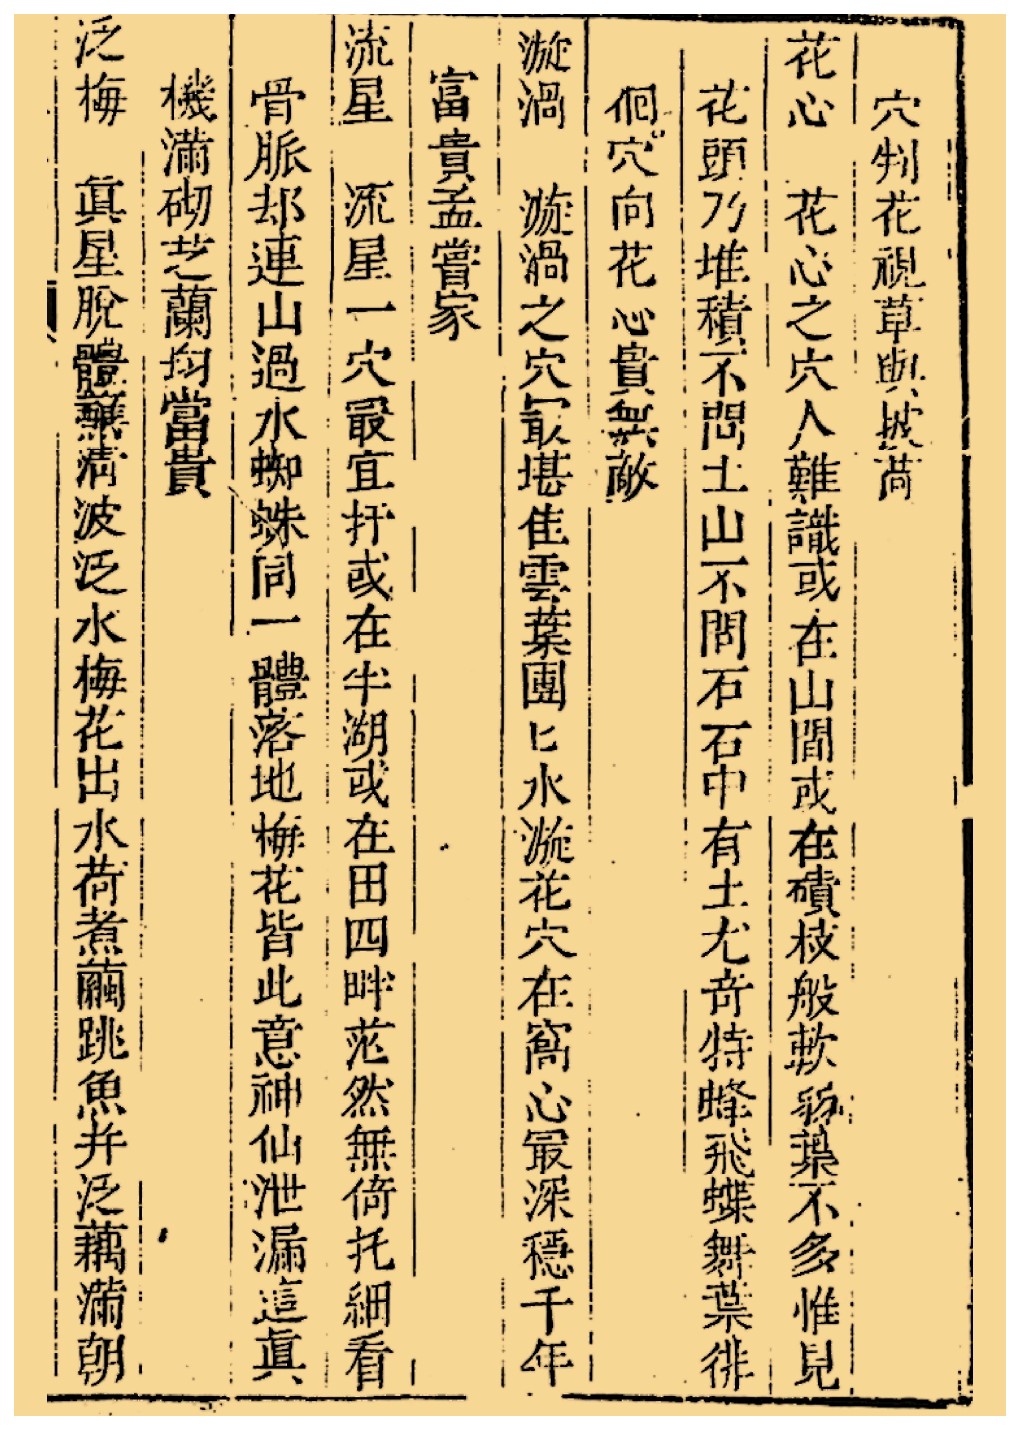 穴判花視草與披荷
花心　花心之穴人難識或在山間或在磧枝般軟弱葉不多惟見
花頭乃堆積不問土山不問石石中有土尤奇特蜂飛蝶舞葉徘
徊穴向花心貴無敵
漩渦　漩渦之穴最堪隹雲葉團匕水漩花穴在窩心最深穩千年
富貴孟嘗家
流星　流星一穴最宜扦或在半湖或在田四畔茫然無倚托細看
骨脈却連山過水蜘蛛同一體落地梅花皆此意神仙泄漏這真
機滿砌芝蘭均當貴
泛梅　真星脫體蘸清波泛水梅花出水荷煮繭跳魚并泛藕滿朝